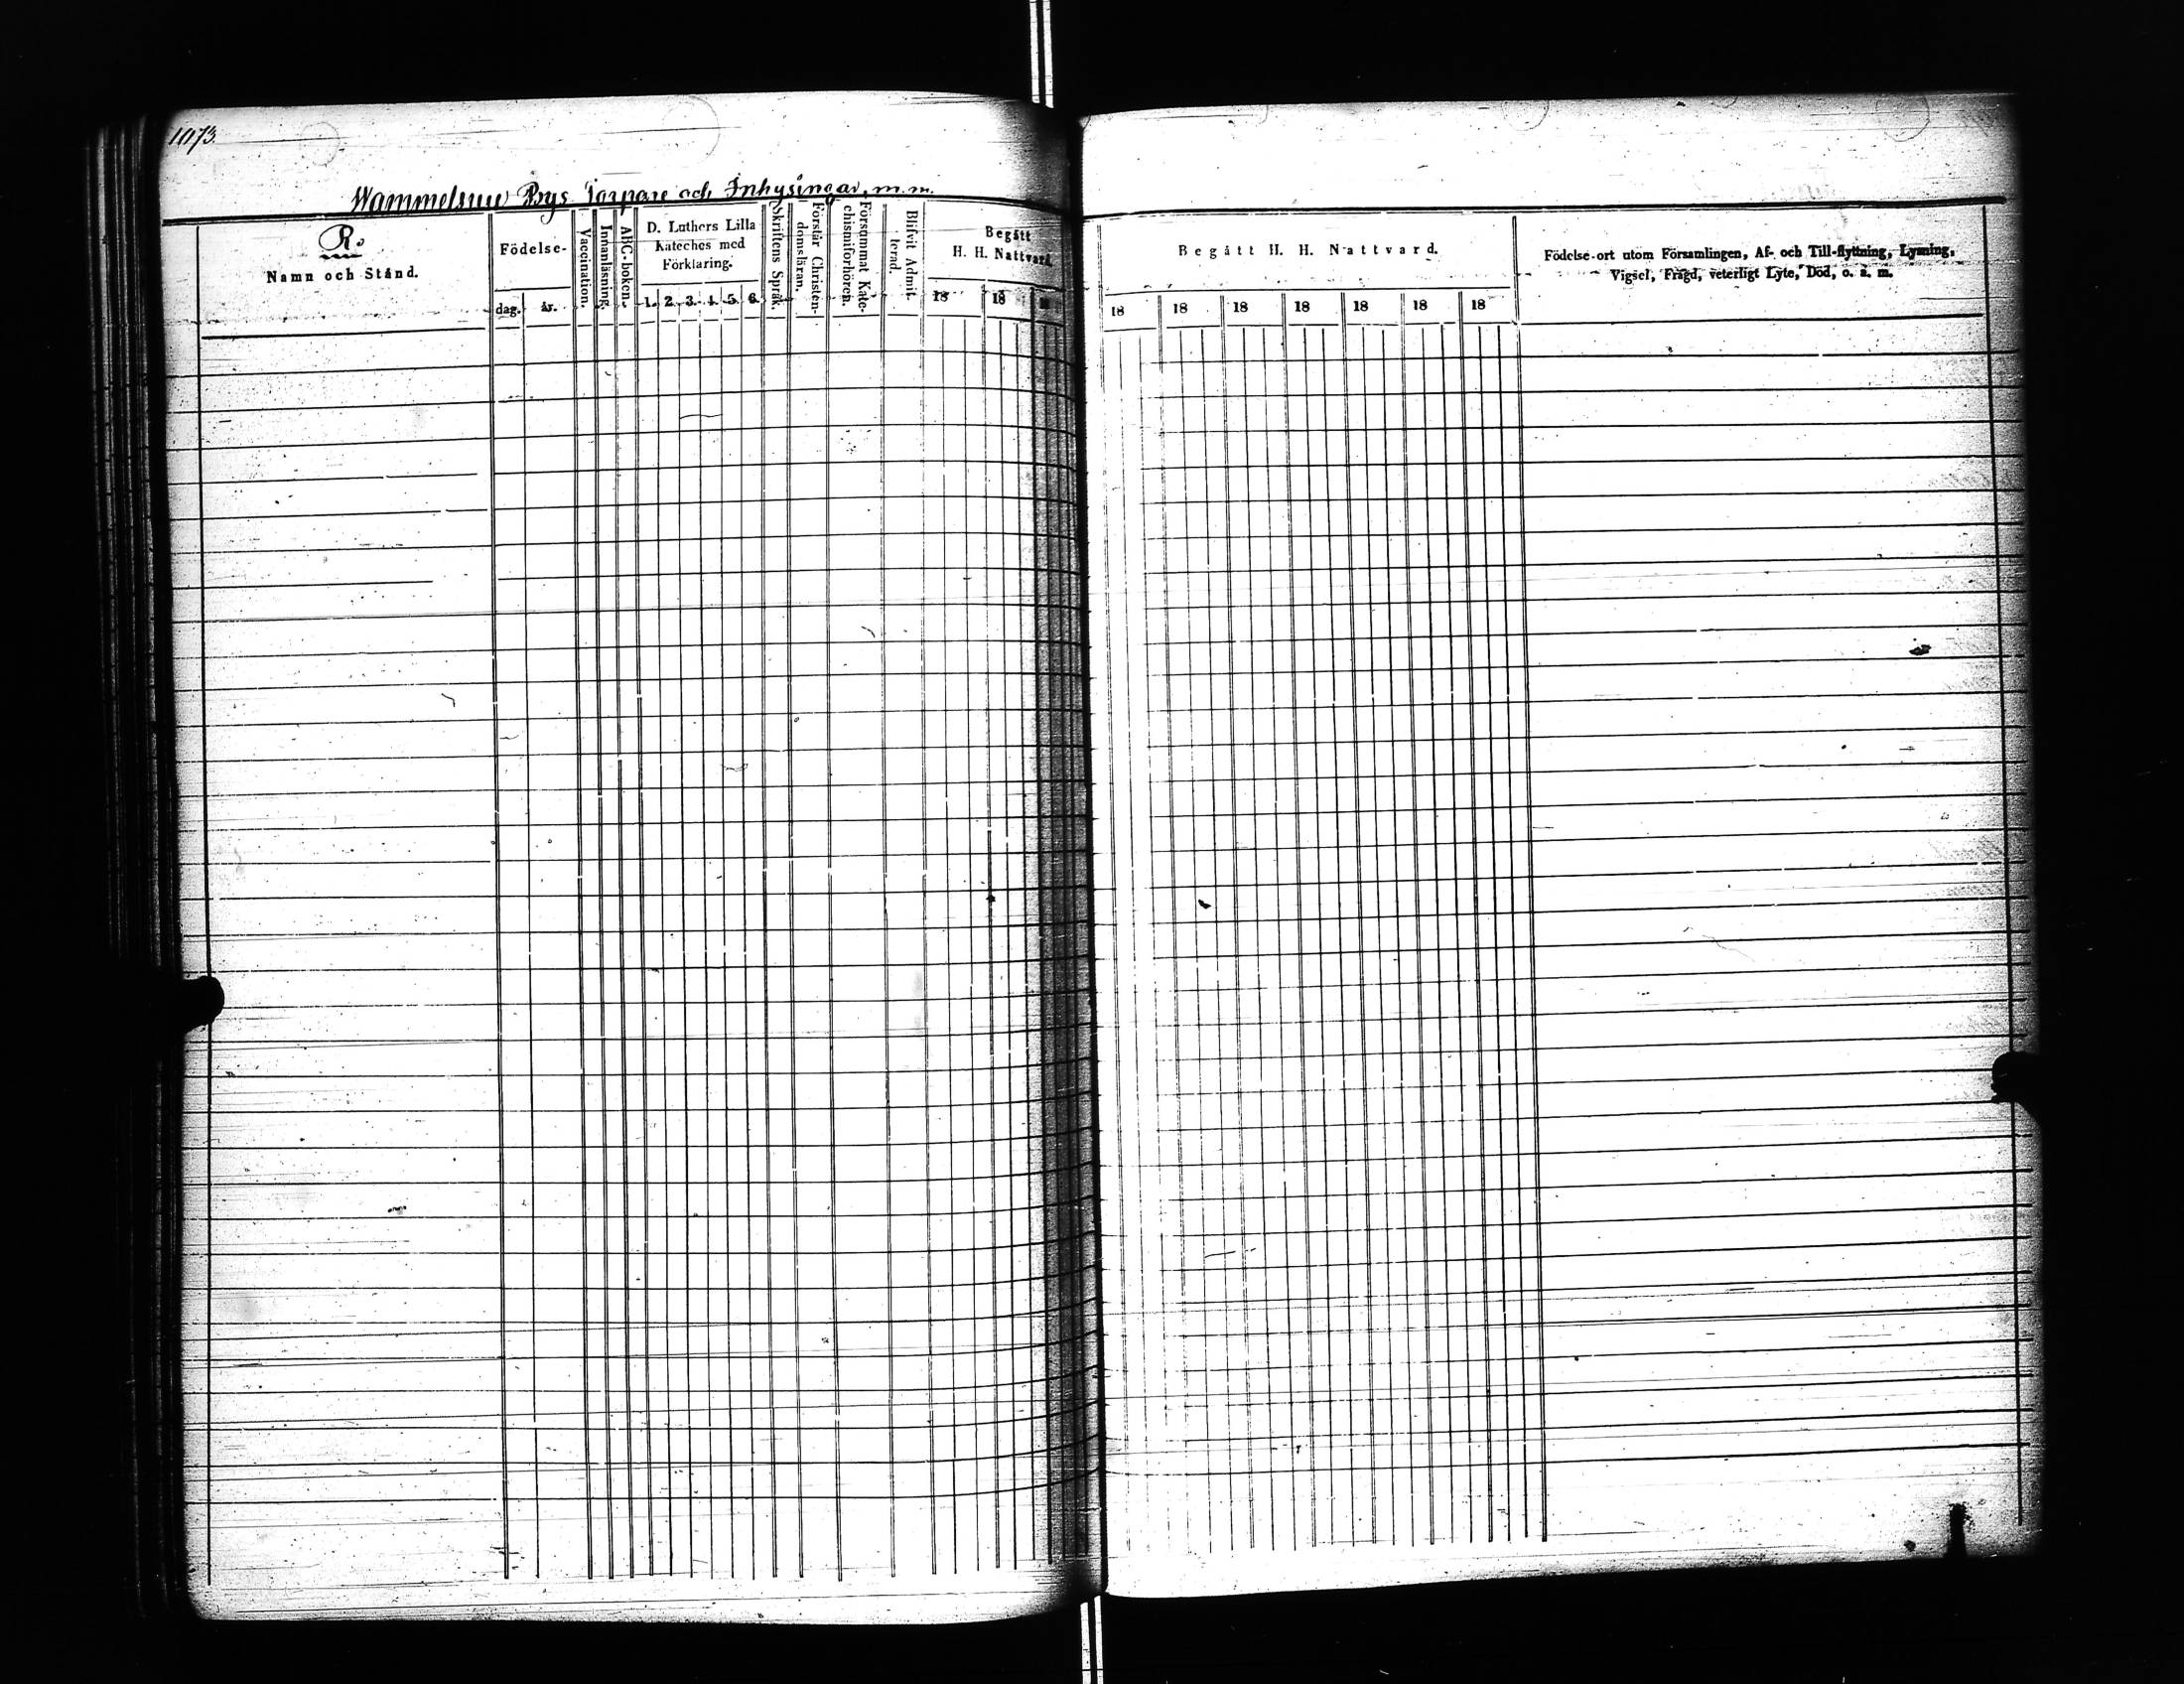 1173.
Wammelsuu Bys Torpare och Inhysingar, m. m.
R.
Namn och Stånd.
Födelse-
dag.
år.
Vaccination.
Innanläsning.
ABC-boken.
D. Luthers Lilla
Kateches med
Förklaring.
1. 2. 3. 4. 5. 6.
Skriftens Språk.
Förstår Christen-
domsläran.
Försummat Kate-
chismiförhören.
Blifvit Admit-
terad.
Begått
H. H. Nattvard.
18 18
Begått H. H. Nattvard.
18 18 18 18 18 18 18
Födelse-ort utom Församlingen, Af- och Till-flyttning, Lysning,
Vigsel, Frägd, veterligt Lyte, Död, o. a. m.